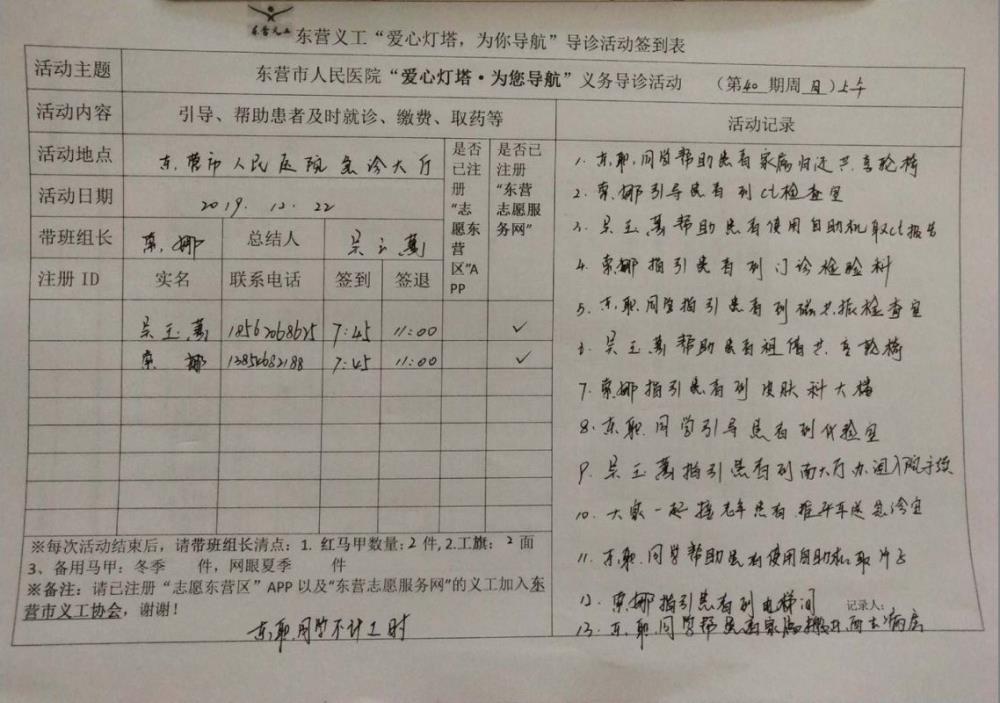 东营义工
东营义工“爱心灯塔，为你导航”导诊活动签到表
活动主题
东营市人民医院“爱心灯塔·为您导航”义务导诊活动 （第40期周日）上午
活动内容
引导、帮助患者及时就诊、缴费、取药等
活动地点
东营市人民医院急诊大厅
活动日期
2019.12.22
带班组长
索娜
总结人
吴玉蕙
是否已注册“志愿东营区”APP
是否已注册“东营志愿服务网”
注册ID 实名 联系电话 签到 签退
吴玉蕙 18562068625 7:45 11:00 ✓
索娜 13854682188 7:45 11:00 ✓
※每次活动结束后，请带班组长清点：1. 红马甲数量：2件，2.工旗：2面
3、备用马甲：冬季 件，网眼夏季 件
※备注：请已注册“志愿东营区”APP以及“东营志愿服务网”的义工加入东
营市义工协会，谢谢！
东职同学不计工时
活动记录
1. 东职同学帮助患者家属归还共享轮椅
2. 索娜引导患者到ct检查室
3. 吴玉蕙帮助患者使用自助机取ct报告
4. 索娜指引患者到门诊检验科
5. 东职同学指引患者到磁共振检查室
6. 吴玉蕙帮助患者租借共享轮椅
7. 索娜指引患者到皮肤科大楼
8. 东职同学引导患者到化验室
9. 吴玉蕙指引患者到西大厅办理入院手续
10. 大家一起接老年患者，推平车送急诊室
11. 东职同学帮助患者使用自助机取片子
12. 索娜指引患者到电梯间
记录人：
13. 东职同学帮患者家属搬 病房